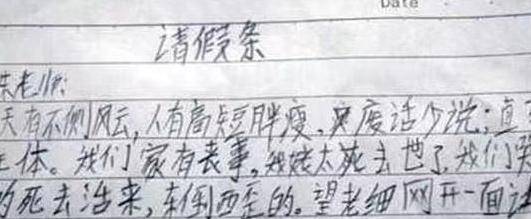 Date
请假条
老师:
天有不侧风云,人有高短胖瘦、更废话少说;直
主体。我们家有丧事,我姥太死去也了,我们哭
的死去活来,东倒西歪的。望老细网开一面让